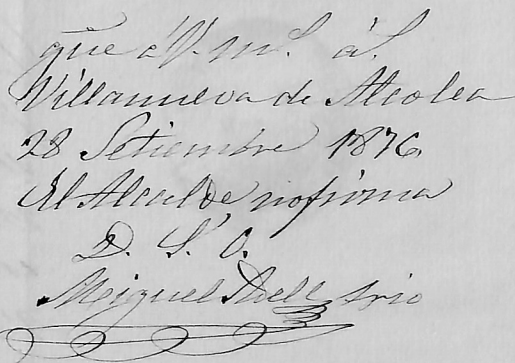 que á V. m.s a.s
Villanueva de Alcolea
28 Setiembre 1876.
El Alcalde no firma
D. S. O.
Miguel Adell Srio